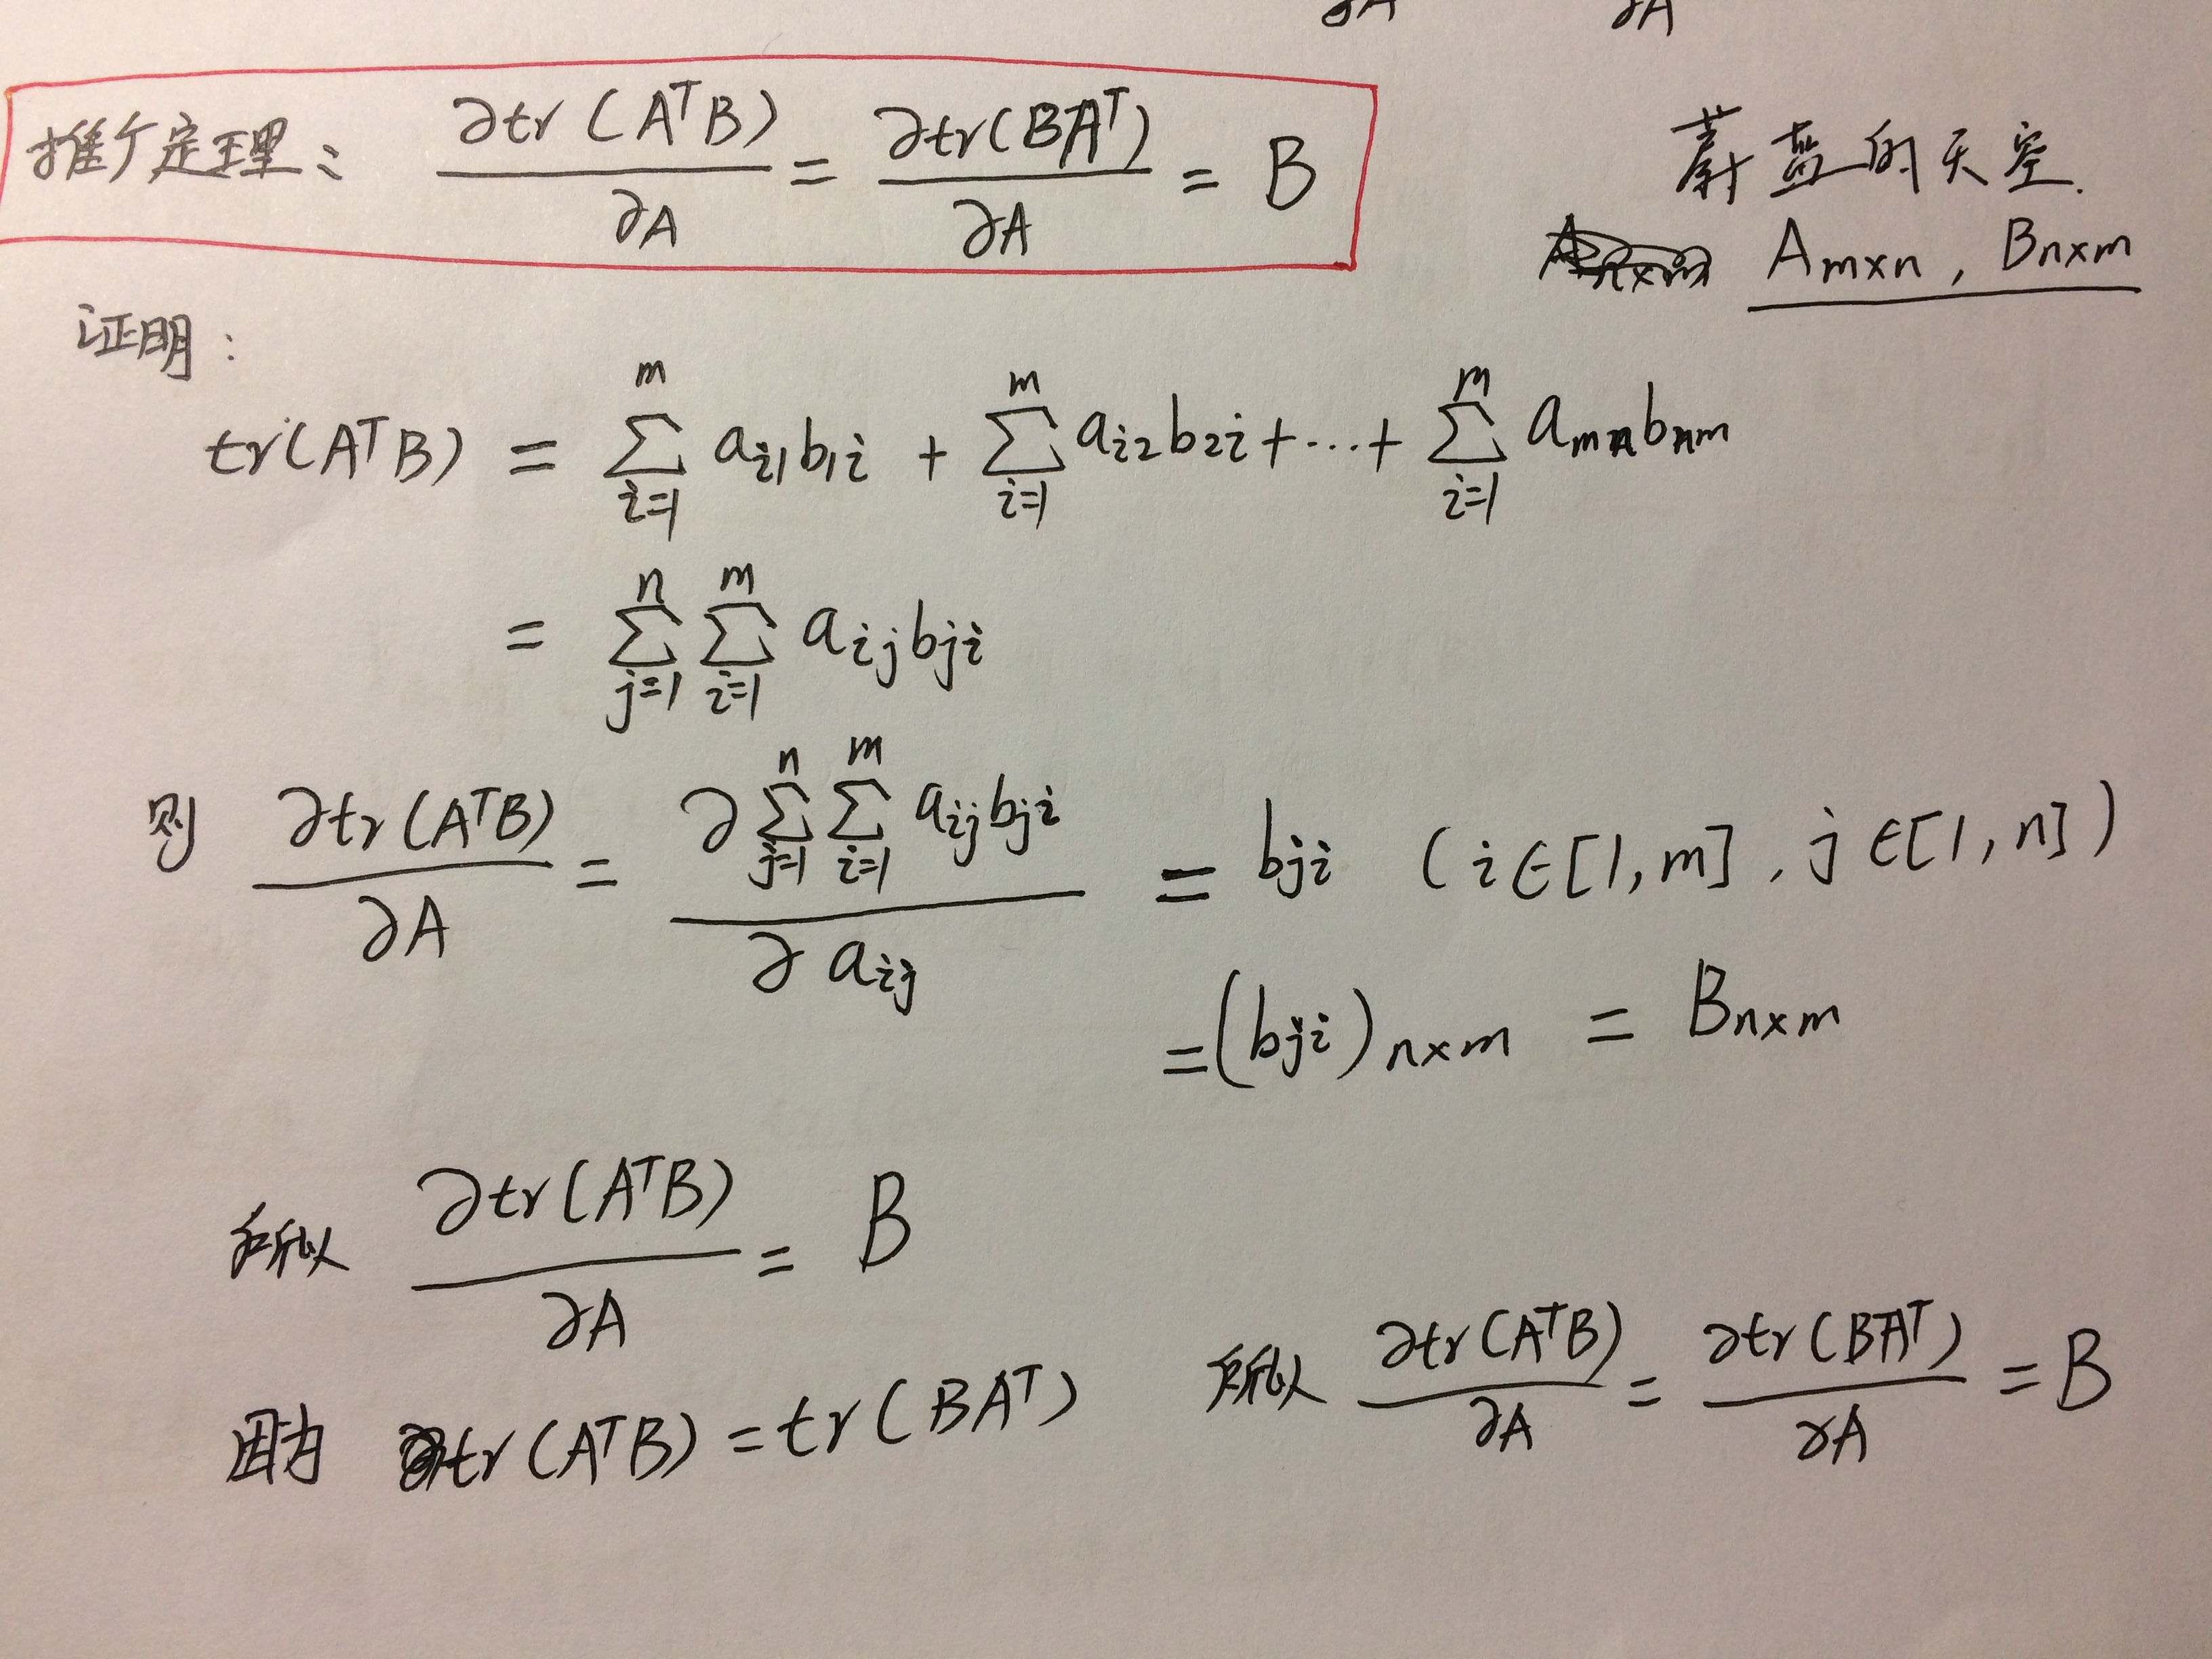 ∂A ∂A
推广定理: ∂tr(AᵀB)/∂A = ∂tr(BAᵀ)/∂A = B
蔚蓝的天空.
Aₘₓₙ , Bₙₓₘ
证明:
tr(AᵀB) = ∑_{i=1}^{m} a_{i1}b_{1i} + ∑_{i=1}^{m} a_{i2}b_{2i} + ... + ∑_{i=1}^{m} a_{mn}b_{nm}
= ∑_{j=1}^{n} ∑_{i=1}^{m} a_{ij}b_{ji}
则 ∂tr(AᵀB)/∂A = ∂∑_{j=1}^{n} ∑_{i=1}^{m} a_{ij}b_{ji}/∂a_{ij} = b_{ji} (i∈[1,m], j∈[1,n])
= (b_{ji})ₙₓₘ = Bₙₓₘ
所以 ∂tr(AᵀB)/∂A = B
因为 tr(AᵀB) = tr(BAᵀ) 所以 ∂tr(AᵀB)/∂A = ∂tr(BAᵀ)/∂A = B